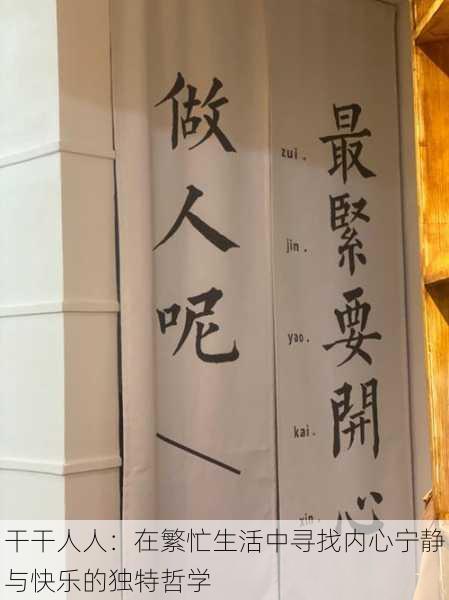 做人呢
最緊要開心
zui .
jin .
yao .
kai .
xin .
干干人人：在繁忙生活中寻找内心宁静
与快乐的独特哲学